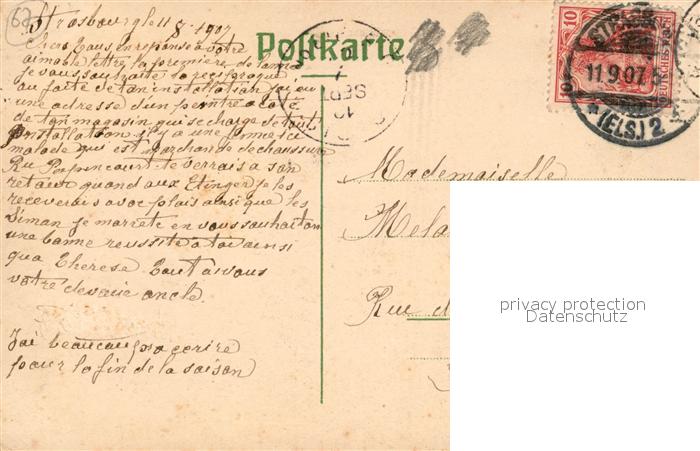 62
Strasbourg le 11 8 - 1907
Postkarte
Chers tous, en reponse a votre
aimable lettre la premiere de
je vous souhaite la
au faite de tan installation jai eu
une adresse d'un peintre a cote
de ton magasin qui se charge de tout
installation il y a une dame ici
malade qui est marchande de chaussure
Ru Popincourt te verrais a son
retour quand aux Etinger je les
receverais avec plais ainsi que les
Siman je marrete en vous souhaitan
une banne reussite a toi ainsi
qua Therese. Tout a vous
votre devoue oncle.
Jai beaucoup a ecrire
pour la fin de la saison
STRASSB
11.9.07.
*(ELS.) 2
10
10
DEUTSCHES REICH
SEPT
10
Mademoiselle
Mela
Rue d
privacy protection
Datenschutz